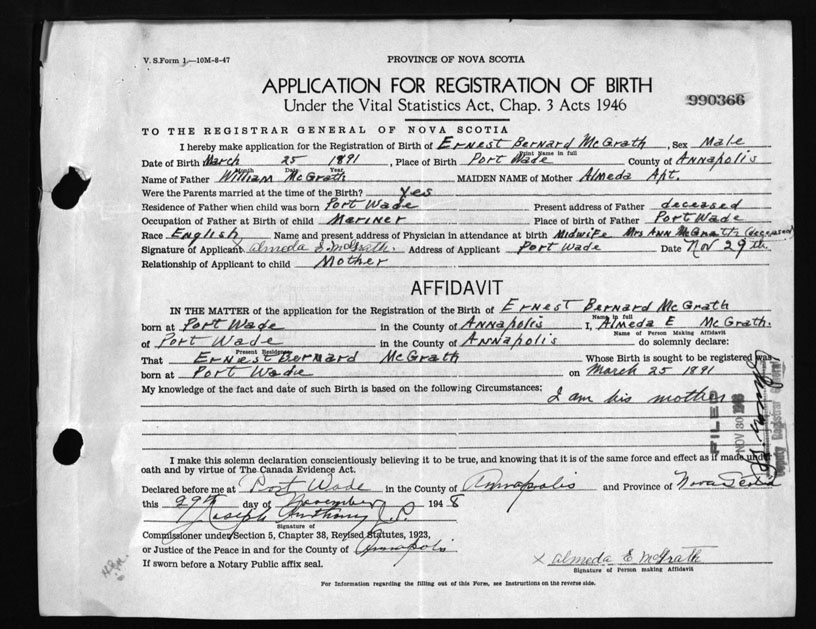 V. S. Form 1.—10M-8-47
PROVINCE OF NOVA SCOTIA
APPLICATION FOR REGISTRATION OF BIRTH
Under the Vital Statistics Act, Chap. 3 Acts 1946
990366
TO THE REGISTRAR GENERAL OF NOVA SCOTIA
I hereby make application for the Registration of Birth of Ernest Bernard McGrath, Sex Male
Print Name in full
Date of Birth March 25 1891, Place of Birth Port Wade County of Annapolis
Month Date Year
Name of Father William McGrath MAIDEN NAME of Mother Almeda Apt.
Were the Parents married at the time of the Birth? Yes
Residence of Father when child was born Port Wade Present address of Father deceased
Occupation of Father at Birth of child Mariner Place of birth of Father Port Wade
Race English Name and present address of Physician in attendance at birth Midwife Mrs Ann McGrath (deceased)
Signature of Applicant Almeda E. McGrath. Address of Applicant Port Wade Date Nov 29th
Relationship of Applicant to child Mother
AFFIDAVIT
IN THE MATTER of the application for the Registration of the Birth of Ernest Bernard McGrath
Name in full
born at Port Wade in the County of Annapolis I, Almeda E McGrath.
Name of Person Making Affidavit
of Port Wade in the County of Annapolis do solemnly declare:
Present Residence
That Ernest Bernard McGrath Whose Birth is sought to be registered was
born at Port Wade on March 25 1891
My knowledge of the fact and date of such Birth is based on the following Circumstances:
I am his mother
FILED
NOV 30
Deputy Registrar General
I make this solemn declaration conscientiously believing it to be true, and knowing that it is of the same force and effect as if made under
oath and by virtue of The Canada Evidence Act.
Declared before me at Port Wade in the County of Annapolis and Province of Nova Scotia
this 29th day of November 1948
Joseph Anthony J.P.
Signature of
Commissioner under Section 5, Chapter 38, Revised Statutes, 1923,
or Justice of the Peace in and for the County of Annapolis
If sworn before a Notary Public affix seal.
x Almeda E McGrath
Signature of Person making Affidavit
For Information regarding the filling out of this Form, see Instructions on the reverse side.